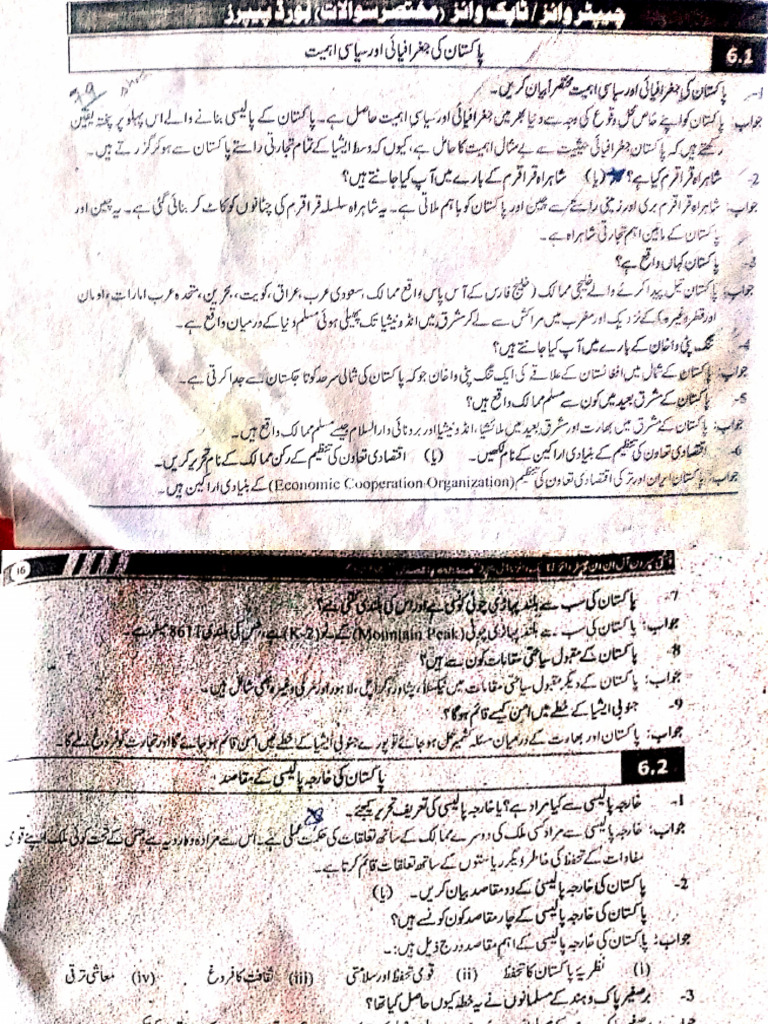 چیپٹر وائز / ٹاپک وائز (مختصر سوالات) بورڈ پیپرز
6.1 پاکستان کی جغرافیائی اور سیاسی اہمیت
1- پاکستان کی جغرافیائی اور سیاسی اہمیت مختصراً بیان کریں۔
جواب: پاکستان کو اپنے خاص محل وقوع کی وجہ سے دنیا بھر میں جغرافیائی اور سیاسی اہمیت حاصل ہے۔ پاکستان کے پالیسی بنانے والے اس پہلو پر پختہ یقین
رکھتے ہیں کہ پاکستان جغرافیائی حیثیت سے بے مثال اہمیت کا حامل ہے، کیوں کہ وسط ایشیا کے تمام تجارتی راستے پاکستان سے ہو کر گزرتے ہیں۔
2- شاہراہ قراقرم کیا ہے؟ (یا) شاہراہ قراقرم کے بارے میں آپ کیا جانتے ہیں؟
جواب: شاہراہ قراقرم بری اور زمینی راستے سے چین اور پاکستان کو باہم ملاتی ہے۔ یہ شاہراہ سلسلہ قراقرم کی چٹانوں کو کاٹ کر بنائی گئی ہے۔ یہ چین اور
پاکستان کے مابین اہم تجارتی شاہراہ ہے۔
3- پاکستان کہاں واقع ہے؟
جواب: پاکستان تیل پیدا کرنے والے خلیجی ممالک (خلیج فارس کے آس پاس واقع ممالک، سعودی عرب، عراق، کویت، بحرین، متحدہ عرب امارات، اومان
اور قطر وغیرہ) کے نزدیک اور مغرب میں مراکش سے لے کر مشرق میں انڈونیشیا تک پھیلی ہوئی مسلم دنیا کے درمیان واقع ہے۔
4- تنگ پٹی واخان کے بارے میں آپ کیا جانتے ہیں؟
جواب: پاکستان کے شمال میں افغانستان کے علاقے کی ایک تنگ پٹی واخان جو کہ پاکستان کی شمالی سرحد کو تاجکستان سے جدا کرتی ہے۔
5- پاکستان کے مشرق بعید میں کون سے مسلم ممالک واقع ہیں؟
جواب: پاکستان کے مشرق میں بھارت اور مشرق بعید میں ملائشیا، انڈونیشیا اور برونائی دارالسلام جیسے مسلم ممالک واقع ہیں۔
6- اقتصادی تعاون کی تنظیم کے بنیادی اراکین کے نام لکھیں۔ (یا) اقتصادی تعاون کی تنظیم کے رکن ممالک کے نام تحریر کریں۔
جواب: پاکستان ایران اور ترکی اقتصادی تعاون کی تنظیم (Economic Cooperation Organization) کے بنیادی اراکین ہیں۔
16
7- پاکستان کی سب سے بلند پہاڑی چوٹی کونسی ہے اور اس کی بلندی کتنی ہے؟
جواب: پاکستان کی سب سے بلند پہاڑی چوٹی (Mountain Peak) کے ٹو (K-2) ہے، جس کی بلندی 8611 میٹر ہے۔
8- پاکستان کے مقبول سیاحتی مقامات کون سے ہیں؟
جواب: پاکستان کے دیگر مقبول سیاحتی مقامات میں ٹیکسلا، پشاور، کراچی، لاہور اور مری وغیرہ بھی شامل ہیں۔
9- جنوبی ایشیا کے خطے میں امن کیسے قائم ہوگا؟
جواب: پاکستان اور بھارت کے درمیان مسئلہ کشمیر حل ہو جائے تو پورے جنوبی ایشیا کے خطے میں امن قائم ہو جائے گا اور تجارت کو فروغ ملے گا۔
6.2 پاکستان کی خارجہ پالیسی کے مقاصد
1- خارجہ پالیسی سے کیا مراد ہے؟ یا خارجہ پالیسی کی تعریف تحریر کیجئے۔
جواب: خارجہ پالیسی سے مراد کسی ملک کی دوسرے ممالک کے ساتھ تعلقات کی حکمت عملی ہے۔ اس سے مراد وہ رویہ ہے جس کے تحت کوئی ملک اپنے قومی
مفادات کے تحفظ کی خاطر دیگر ریاستوں کے ساتھ تعلقات قائم کرتا ہے۔
2- پاکستان کی خارجہ پالیسی کے دو مقاصد بیان کریں۔ (یا)
پاکستان کی خارجہ پالیسی کے چار مقاصد کون کونسے ہیں؟
جواب: پاکستان کی خارجہ پالیسی کے اہم مقاصد درج ذیل ہیں:۔
(i) نظریہ پاکستان کا تحفظ (ii) قومی تحفظ اور سلامتی (iii) ثقافت کا فروغ (iv) معاشی ترقی
3- برصغیر پاک و ہند کے مسلمانوں نے یہ خطہ کیوں حاصل کیا تھا؟